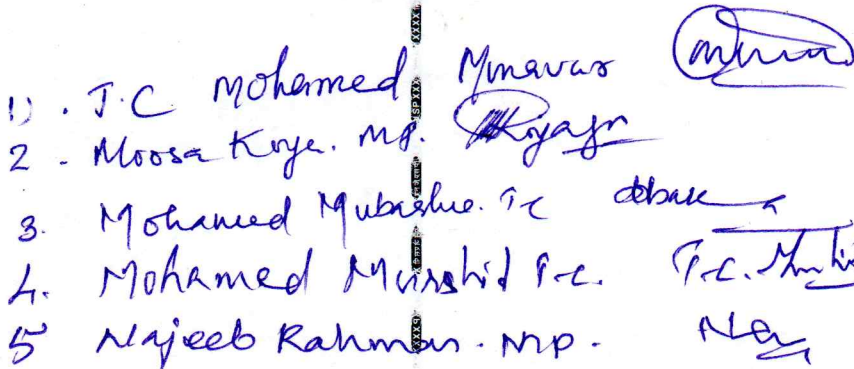 1) . T.C Mohamed Munavar
2 - Moosa Koya. MP.
3. Mohamed Mubashir. T.C
4. Mohamed Murshid T.C. T.C.
5 Najeeb Rahman. MP.